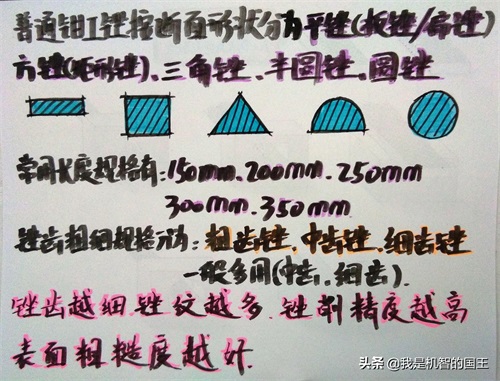 普通钳工锉按断面形状分为平锉(板锉/扁锉)
方锉(矩形锉)、三角锉、半圆锉、圆锉
常用长度规格有:150mm、200mm、250mm
300mm、350mm
锉齿粗细规格分为:粗齿锉、中齿锉、细齿锉
一般多用(中齿、细齿).
锉齿越细.锉纹越多.锉削精度越高
表面粗糙度越好.
头条 @我是机智的国王